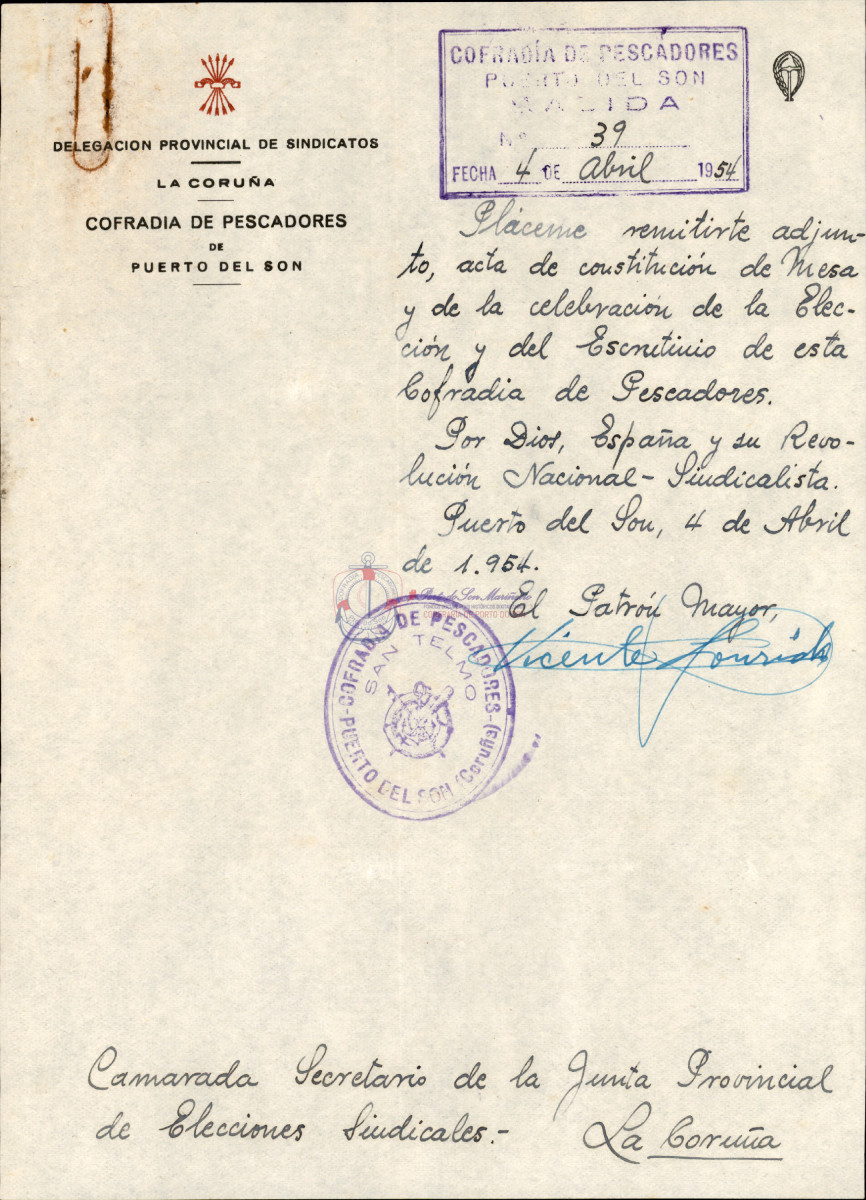 DELEGACION PROVINCIAL DE SINDICATOS
LA CORUÑA
COFRADIA DE PESCADORES
DE
PUERTO DEL SON
COFRADÍA DE PESCADORES
PUERTO DEL SON
SALIDA
Nº 39
FECHA 4 DE Abril 1954
Pláceme remitirte adjun-
to, acta de constitución de Mesa
y de la celebración de la Elec-
ción y del Escrutinio de esta
Cofradia de Pescadores.
Por Dios, España y su Revo-
lución Nacional-Sindicalista.
Puerto del Son, 4 de Abril
de 1.954.
El Patrón Mayor,
Vicente
COFRADÍA DE PESCADORES
SAN TELMO
PUERTO DEL SON (Coruña)
Camarada Secretario de la Junta Provincial
de Elecciones Sindicales.- La Coruña